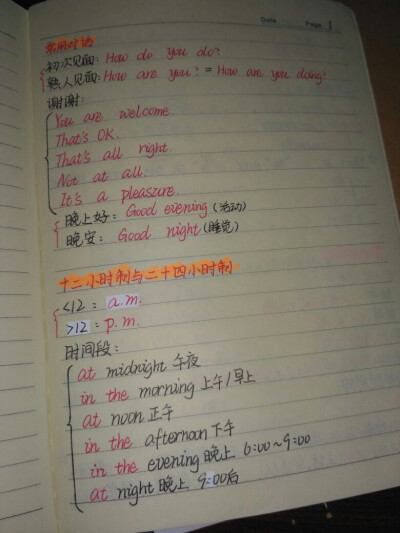 Date Page 1
常用对话
初次见面: How do you do?
熟人见面: How are you? = How are you doing?
谢谢:
You are welcome.
That's OK.
That's all right.
Not at all.
It's a pleasure.
晚上好: Good evening (活动)
晚安: Good night (睡觉)
十二小时制与二十四小时制
<12: a.m.
>12: p.m.
时间段:
at midnight 午夜
in the morning 上午/早上
at noon 正午
in the afternoon 下午
in the evening 晚上 6:00~9:00
at night 晚上 9:00后